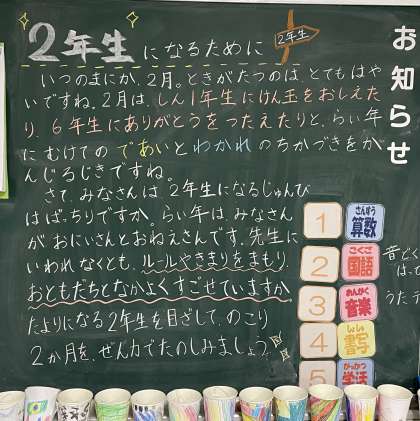 2年生になるために
2年生
いつのまにか、2月。ときがたつのは、とてもはや
いですね。2月は、しん1年生にけん玉をおしえた
り、6年生にありがとうをつたえたりと、らい年
にむけてのであいとわかれのちかづきをか
んじるじきですね。
さて、みなさんは、2年生になるじゅんび
はばっちりですか。らい年は、みなさん
がおにいさんとおねえさんです。先生に
いわれなくとも、ルールやきまりをまもり、
おともだちとなかよくすごせていますか。
たよりになる2年生を目ざして、のこり
2か月を、ぜん力でたのしみましょう。
お知らせ
1
さんすう
算数
2
こくご
国語
3
おんがく
音楽
4
しょしゃ
書写
5
がっかつ
学活
うた